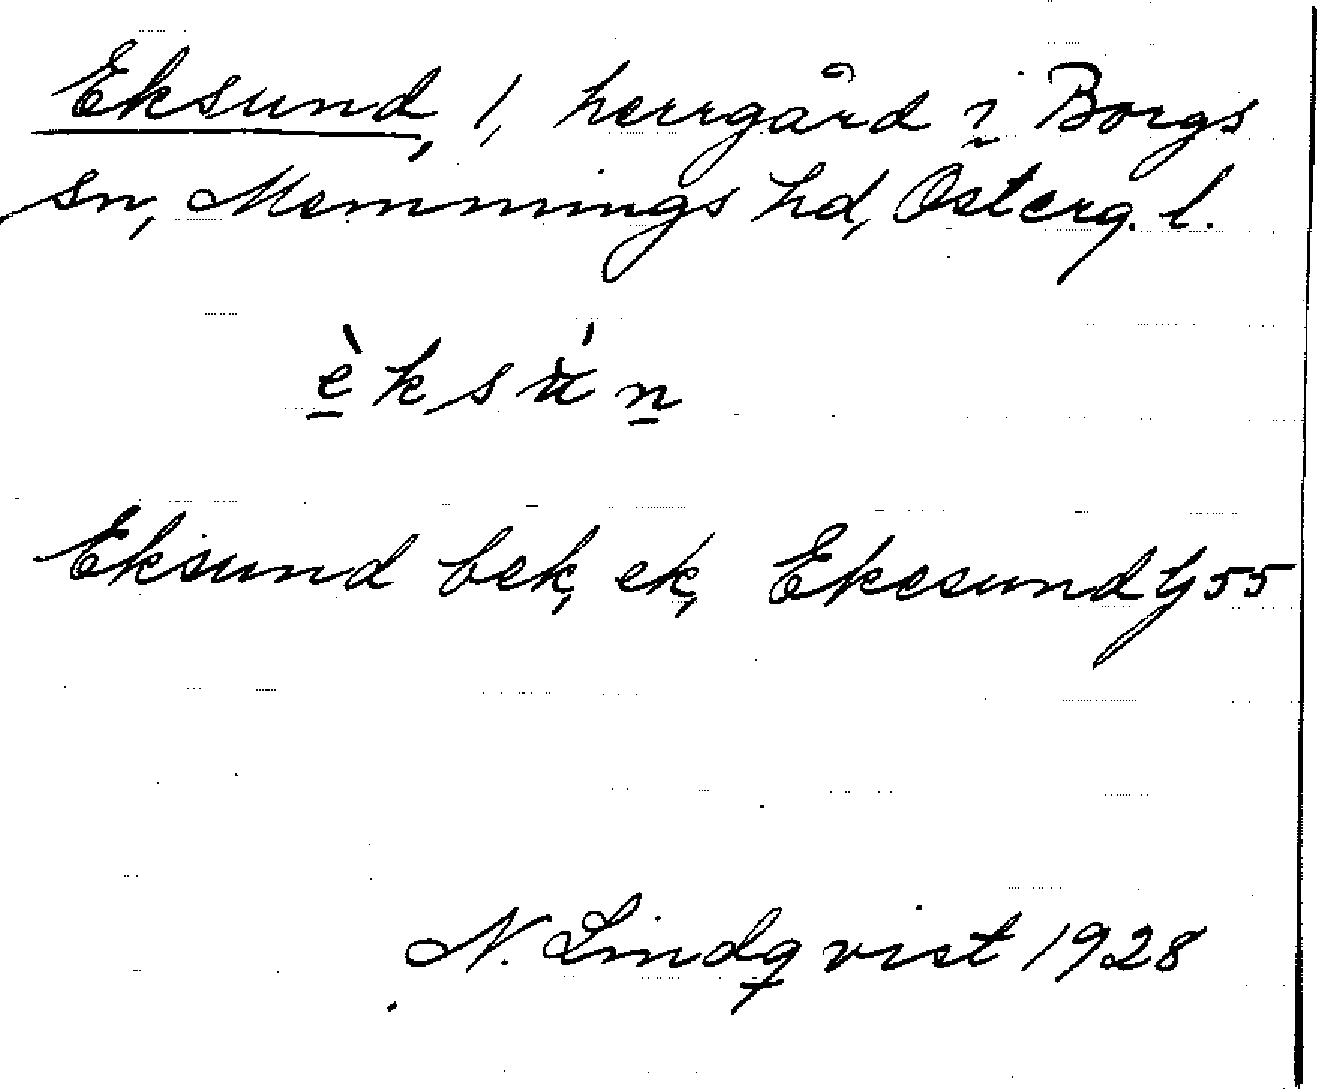 Eksund, 1, herrgård i Borgs
sn, Memmings hd, Österg. l.
èksu̇́n
Eksund bek, ek, Ekesund Gj 55
N. Lindqvist 1928